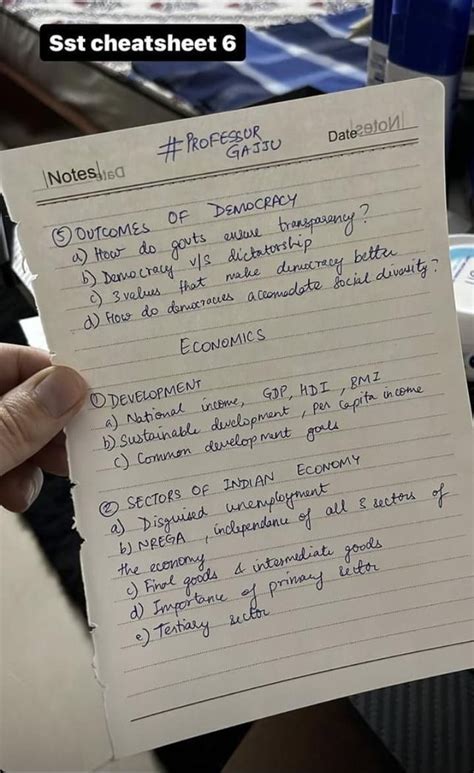 Sst cheatsheet 6
#PROFESSOR
GAJJU
Notes
Date
⑤ OUTCOMES OF DEMOCRACY
a) How do govts ensure transparency?
b) Democracy v/s dictatorship
c) 3 values that make democracy better
d) How do democracies accomodate social diversity?
ECONOMICS
① DEVELOPMENT
a) National income, GDP, HDI, BMI
b) Sustainable development, per capita income
c) Common development goals
② SECTORS OF INDIAN ECONOMY
a) Disguised unemployment
b) NREGA, independance of all 3 sectors of
the economy
c) Final goods & intermediate goods
d) Importance of primary sector
e) Tertiary sector